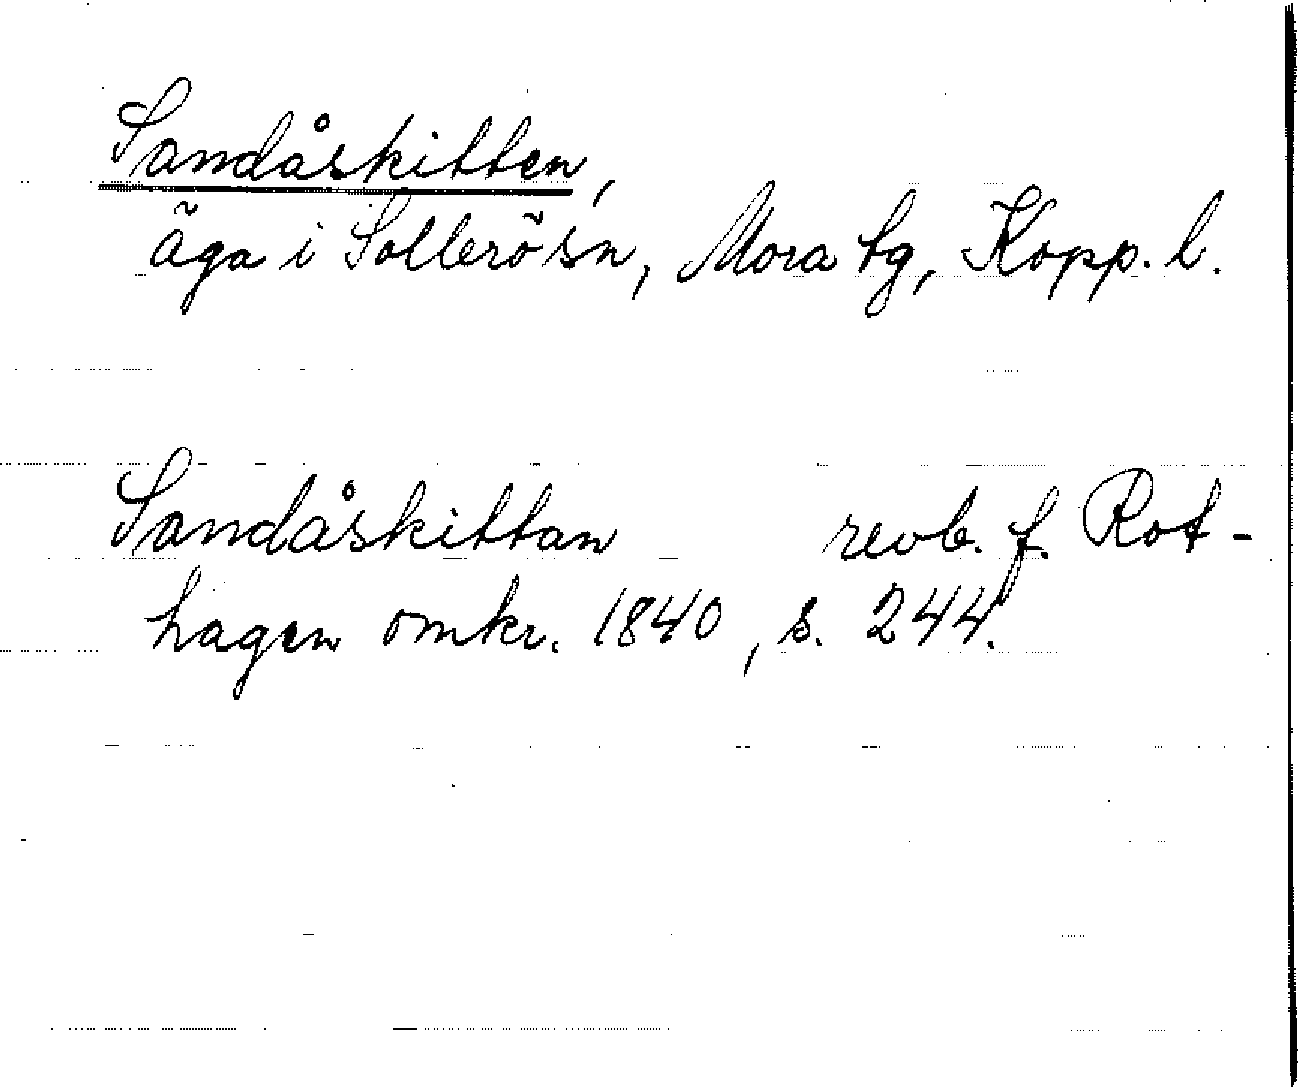 Sandåskitten,
äga i Sollerö sn, Mora tg, Kopp. l.
Sandåskittan revb. f. Rot-
hagen omkr. 1840, s. 244.